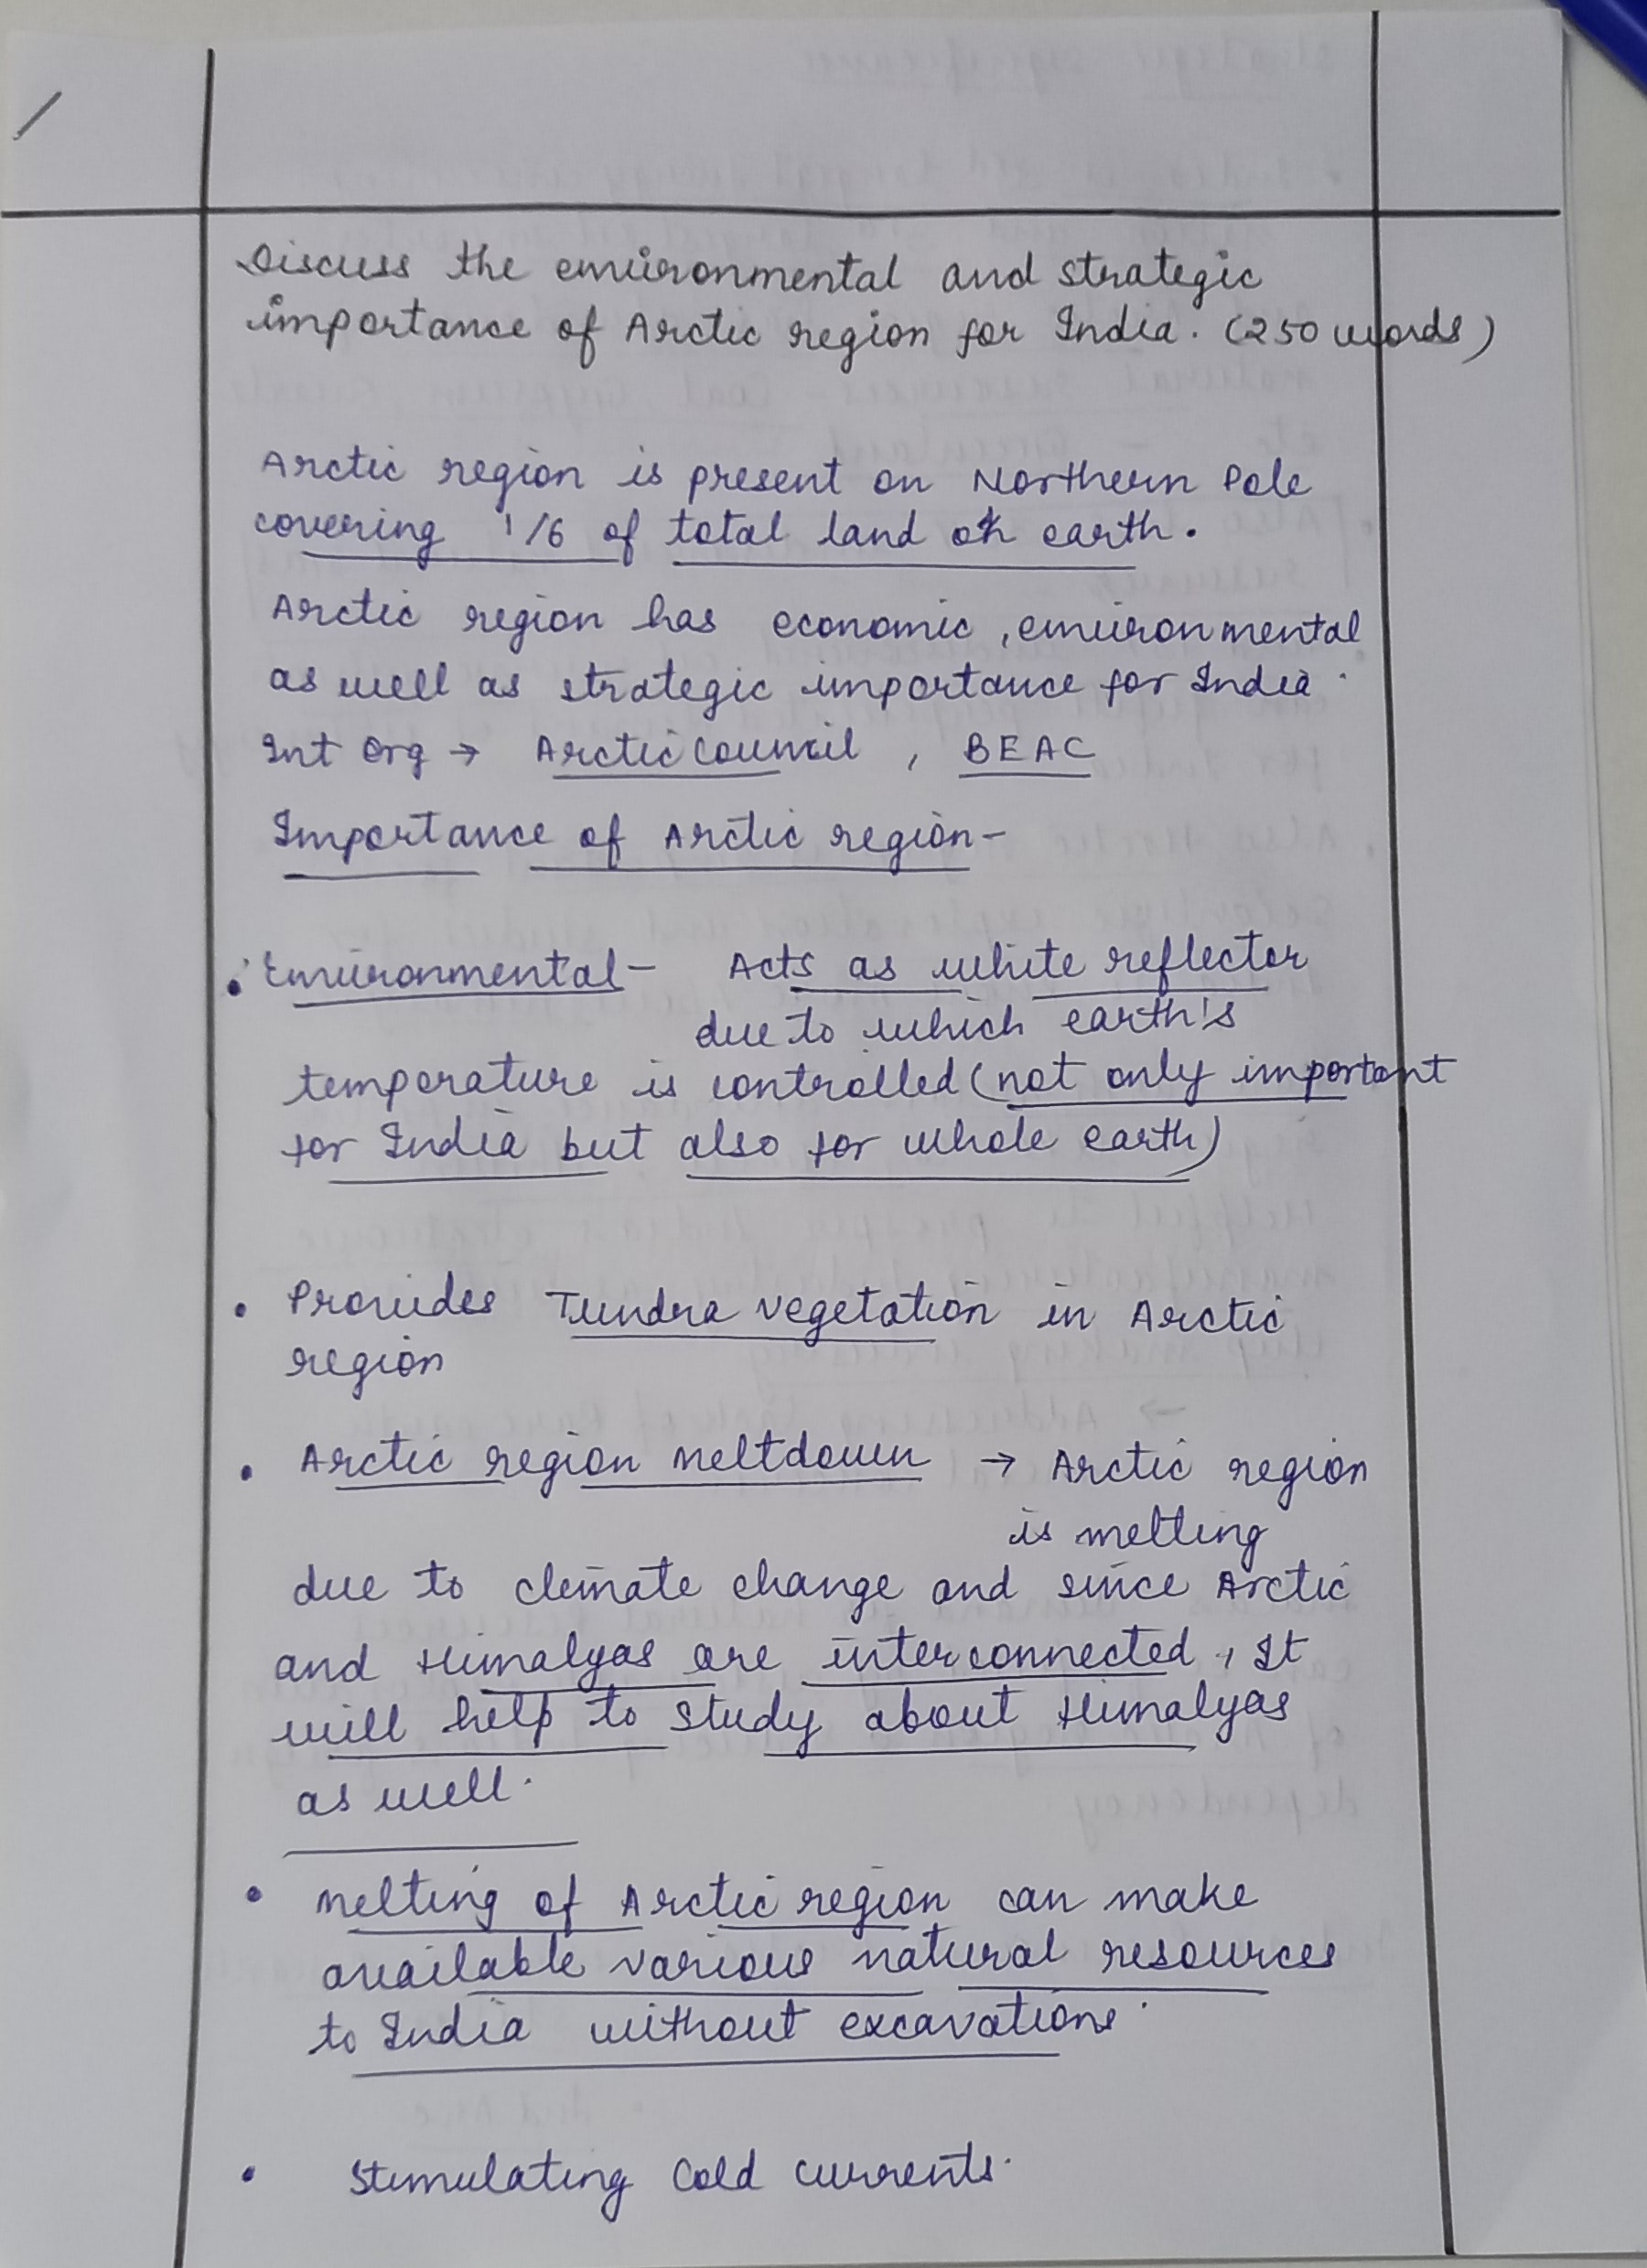 Discuss the environmental and strategic
importance of Arctic region for India. (250 words)
Arctic region is present on Northern Pole
covering 1/6 of total land on earth.
Arctic region has economic, environmental
as well as strategic importance for India.
Int org → Arctic Council, BEAC
Importance of Arctic region-
• Environmental - Acts as white reflector
due to which earth's
temperature is controlled (not only important
for India but also for whole earth)
• Provides Tundra vegetation in Arctic
region
• Arctic region meltdown → Arctic region
is melting
due to climate change and since Arctic
and Himalyas are interconnected, It
will help to study about Himalyas
as well.
• Melting of Arctic region can make
available various natural resources
to India without excavations.
• Stimulating Cold currents.